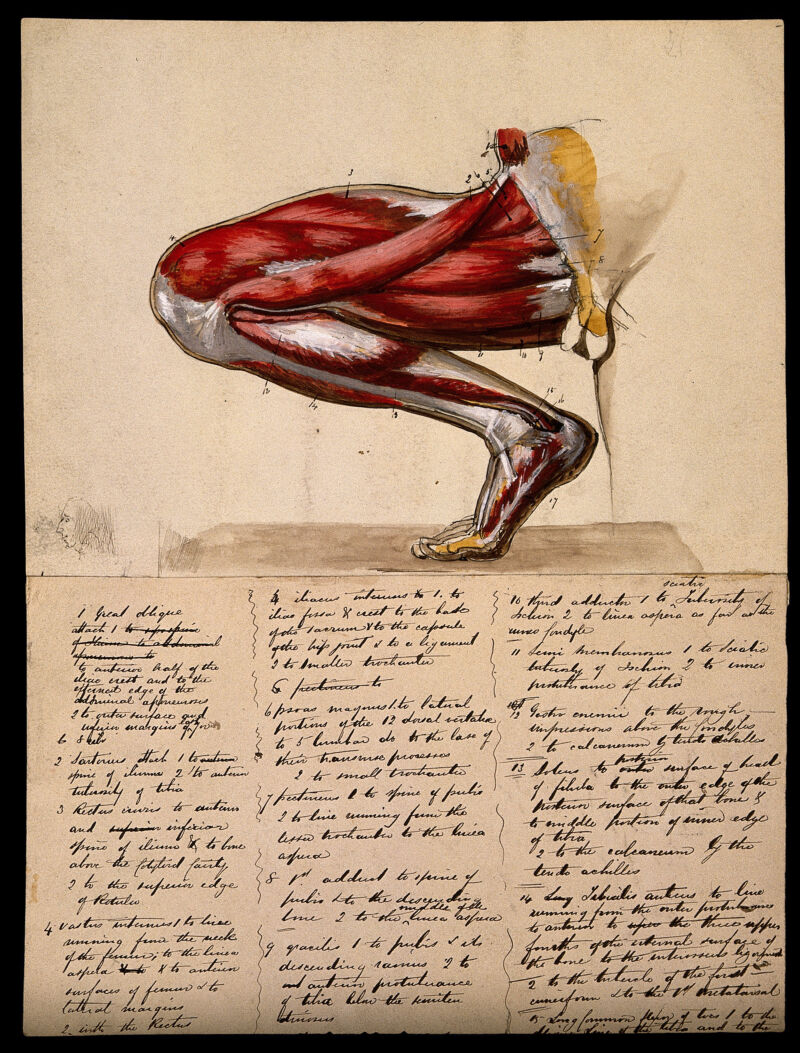 1 Great oblique
attach 1
to anterior half of the
iliac crest and to the
edge of the
abdominal aponeurosis
2 to outer surface and
inferior margins of
6 8 ribs
2 Sartorius attach 1 to
spine of ileum 2 to anterior
tuberosity of tibia
3 Rectus cruris to anterior
and inferior
spine of ileum & to bone
above the Cotyloid Cavity
2 to the superior edge
of Rotula
4 vastus internus 1 to line
running from the neck
of the femur; to the linea
aspera & to anterior
surfaces of femur & to
lateral margins
2 with the Rectus
iliacus internus 1. to
iliac fossa & crest to the base
of the sacrum & to the capsule
of the hip joint & to a ligament
2 to smaller trochanter
6 pectineus to
6 psoas magnus 1. to lateral
portions of the 12 dorsal vertebra
to 5 lumbar do to the base of
their transverse processes
2 to small trochanter
7 pectineus 1 to spine of pubis
2 to line running from the
lesser trochanter to the linea
aspera
8 1st adduct to spine of
pubis & to the descending
middle of the
bone 2 to the linea aspera
9 gracilis 1 to pubis & its
descending ramus 2 to
anterior protuberance
of tibia below the
sciatic
10 third adductor 1 to Tuberosity of
Ischium 2 to linea aspera as far as the
inner condyle
11 Semi membranosus 1 to Sciatic
tuberosity of Ischium 2 to inner
protuberance of tibia
12 Gastrocnemii to the rough
impressions above the Condyles
2 to calcaneum by tendo achilles
13 Soleus to posterior surface of head
of fibula to the outer edge of the
posterior surface of that bone &
to middle portion of inner edge
of tibia
2 to the calcaneum by the
tendo achilles
14 Tibialis anticus to line
running from the outer
to anterior to the three upper
fourths of the internal surface of
the bone to the interosseus
2 to the tubercle of the first
cuneiform & to the 1st metatarsal
15 Long Common flexor of toes 1 to the
line of the tibia and to the